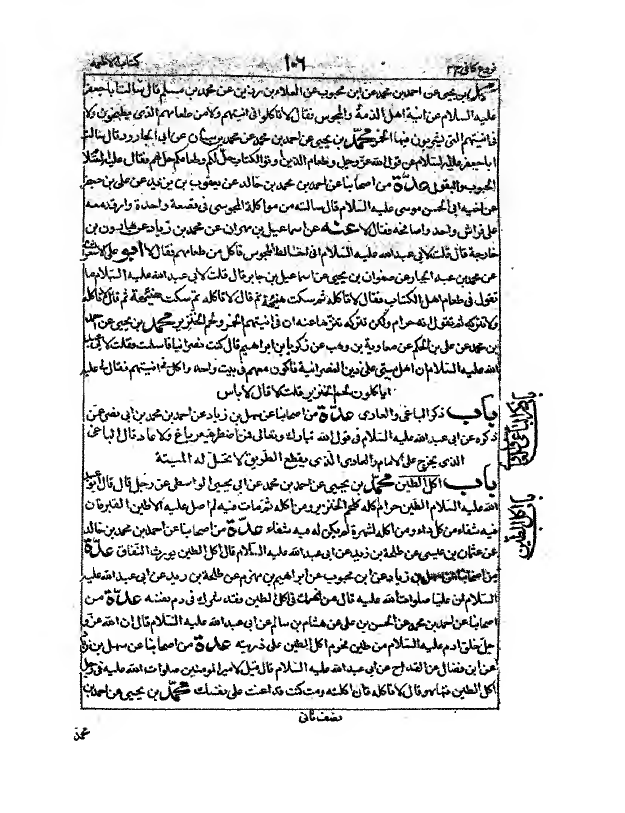 فروع كافي ج ٢ ١٠٦ كتاب الاطعمة
محمد بن يحيى عن احمد بن محمد عن ابن محبوب عن العلاء بن رزين عن محمد بن مسلم قال سالت ابا جعفر
عليه السلام عن انية اهل الذمة والمجوس فقال لا تاكلوا في انيتهم ولا من طعامهم الذي يطبخون ولا
في انيتهم التي يشربون فيها الخمر محمد بن يحيى عن احمد بن محمد عن محمد بن سنان عن ابي الجارود قال سالت
ابا جعفر عليه السلام عن قول الله عز وجل وطعام الذين اوتوا الكتاب حل لكم وطعامكم حل لهم فقال عليه السلام
الحبوب والبقول عدة من اصحابنا عن احمد بن محمد بن خالد عن يعقوب بن يزيد عن علي بن جعفر
عن اخيه ابي الحسن موسى عليه السلام قال سالته عن مواكلة المجوسي في قصعة واحدة وارقد معه
على فراش واحد واصافحه فقال لا عنه عن اسماعيل بن مهران عن محمد بن زياد عن هارون بن
خارجة قال قلت لابي عبد الله عليه السلام اني اخالط المجوس فاكل من طعامهم فقال لا ابو علي الاشعري
عن محمد بن عبد الجبار عن صفوان بن يحيى عن اسماعيل بن جابر قال قلت لابي عبد الله عليه السلام ما
تقول في طعام اهل الكتاب فقال لا تاكله ثم سكت هنيئة ثم قال لا تاكله ثم سكت هنيئة ثم قال لا تاكله
ولا تتركه تقول انه حرام ولكن تتركه تنزها عنه ان في انيتهم الخمر ولحم الخنزير محمد بن يحيى عن احمد
بن محمد عن علي بن الحكم عن معاوية بن وهب عن زكريا بن ابراهيم قال كنت نصرانيا فاسلمت فقلت لابي عبد
الله عليه السلام ان اهل بيتي على دين النصرانية فاكون معهم في بيت واحد واكل في انيتهم فقال لي عليه
اياكلون لحم الخنزير قلت لا قال لا باس
باب ذكر الباغي والعادي عدة من اصحابنا عن سهل بن زياد عن احمد بن محمد بن ابي نصر عمن
ذكره عن ابي عبد الله عليه السلام في قول الله تبارك وتعالى فمن اضطر غير باغ ولا عاد قال الباغي
الذي يخرج على الامام والعادي الذي يقطع الطريق لا يحل له الميتة
باب اكل الطين محمد بن يحيى عن احمد بن محمد عن ابي يحيى الواسطي عن رجل قال قال ابو عبد
الله عليه السلام الطين حرام كله كلحم الخنزير ومن اكله ثم مات فيه لم اصل عليه الا طين القبر فان
فيه شفاء من كل داء ومن اكله لشهوة لم يكن له فيه شفاء عدة من اصحابنا عن احمد بن محمد بن خالد
عن عثمان بن عيسى عن طلحة بن زيد عن ابي عبد الله عليه السلام قال اكل الطين يورث النفاق عدة
من اصحابنا عن سهل بن زياد عن ابن محبوب عن ابراهيم بن مهزم عن طلحة بن زيد عن ابي عبد الله عليه
السلام ان عليا صلوات الله عليه قال من انهمك في اكل الطين فقد شرك في دم نفسه عدة من
اصحابنا عن احمد بن محمد عن الحسن بن علي عن هشام بن سالم عن ابي عبد الله عليه السلام قال ان الله عز و
جل خلق ادم عليه السلام من طين فحرم اكل الطين على ذريته عدة من اصحابنا عن سهل بن زياد
عن ابن فضال عن القداح عن ابي عبد الله عليه السلام قال قيل لامير المومنين صلوات الله عليه في رجل
اكل الطين فنهاه وقال لا تاكله فان اكلته ومت كنت قد اعنت على نفسك محمد بن يحيى عن احمد بن
نصف ثاني
محمد